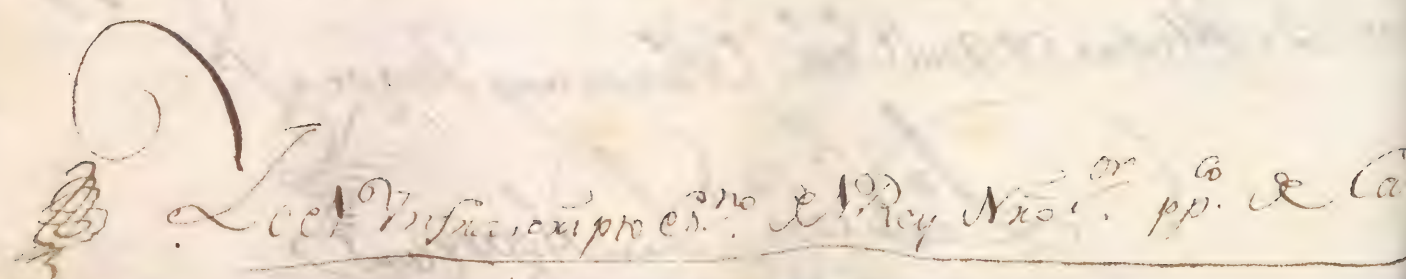 Yo el Infrascripto es.no del Rey Nr̃o s.or pp.co de Ca